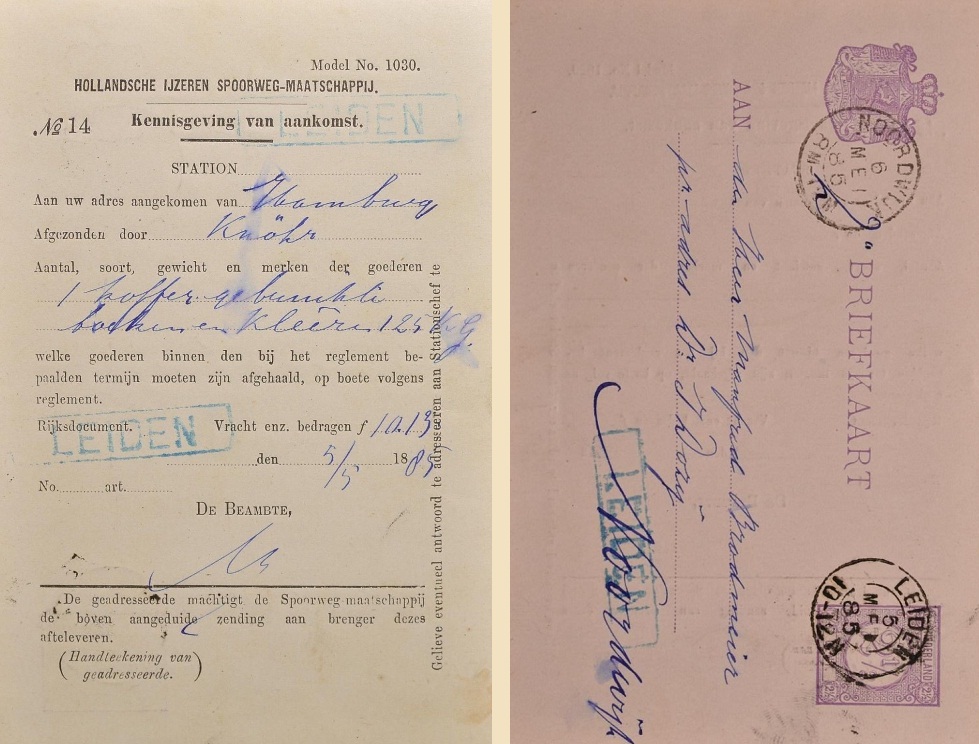 Model No. 1030.
HOLLANDSCHE IJZEREN SPOORWEG-MAATSCHAPPIJ.
No 14 Kennisgeving van aankomst.
LEIDEN
STATION
Aan uw adres aangekomen van Hamburg
Afgezonden door Knöhr
Aantal, soort, gewicht en merken der goederen
1 koffer gebruikte
boeken en kleeren 125 KG
welke goederen binnen den bij het reglement be-
paalden termijn moeten zijn afgehaald, op boete volgens
reglement.
Rijksdocument. Vracht enz. bedragen f 10.13
LEIDEN
den 5/5 1885
No. art.
DE BEAMBTE,
De geadresseerde machtigt de Spoorweg-maatschappij
de boven aangeduide zending aan brenger dezes
afteleveren.
(Handteekening van
geadresseerde.)
Gelieve eventueel antwoord te adresseeren aan Stationschef te
BRIEFKAART
AAN den Heer Manfried Brodmeier
pr adres Dr. Dozy
Noordwijk
LEIDEN
NOORDWIJK
6
MEI
85
8M-12
LEIDEN
5
MEI
85
10-12N
NEDERLAND
2½
2½